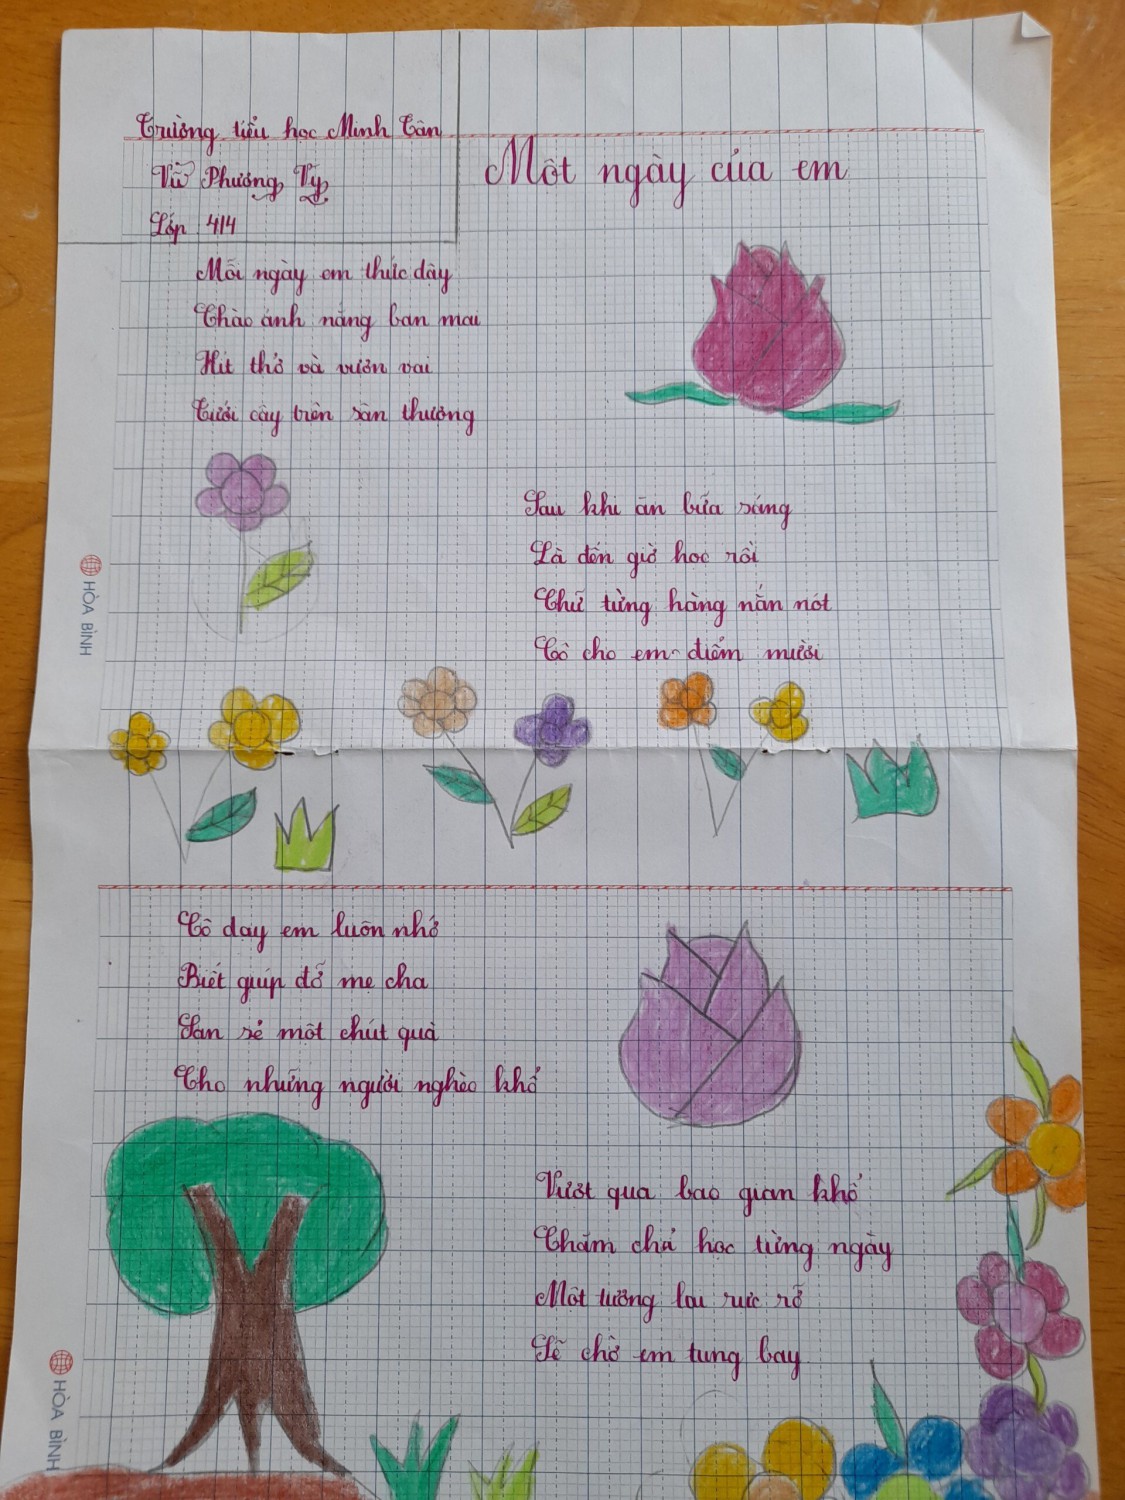 Trường tiểu học Minh Tân
Vũ Phương Vy
Lớp 4/4
Một ngày của em
Mỗi ngày em thức dậy
Chào ánh nắng ban mai
Hít thở và vươn vai
Tưới cây trên sân thượng
Sau khi ăn bữa sáng
Là đến giờ học rồi
Chữ từng hàng nắn nót
Cô cho em điểm mười
HÒA BÌNH
Cô dạy em luôn nhớ
Biết giúp đỡ mẹ cha
San sẻ một chút quà
Cho những người nghèo khổ
Vượt qua bao gian khổ
Chăm chỉ học từng ngày
Một tương lai rực rỡ
Sẽ chờ em tung bay
HÒA BÌNH